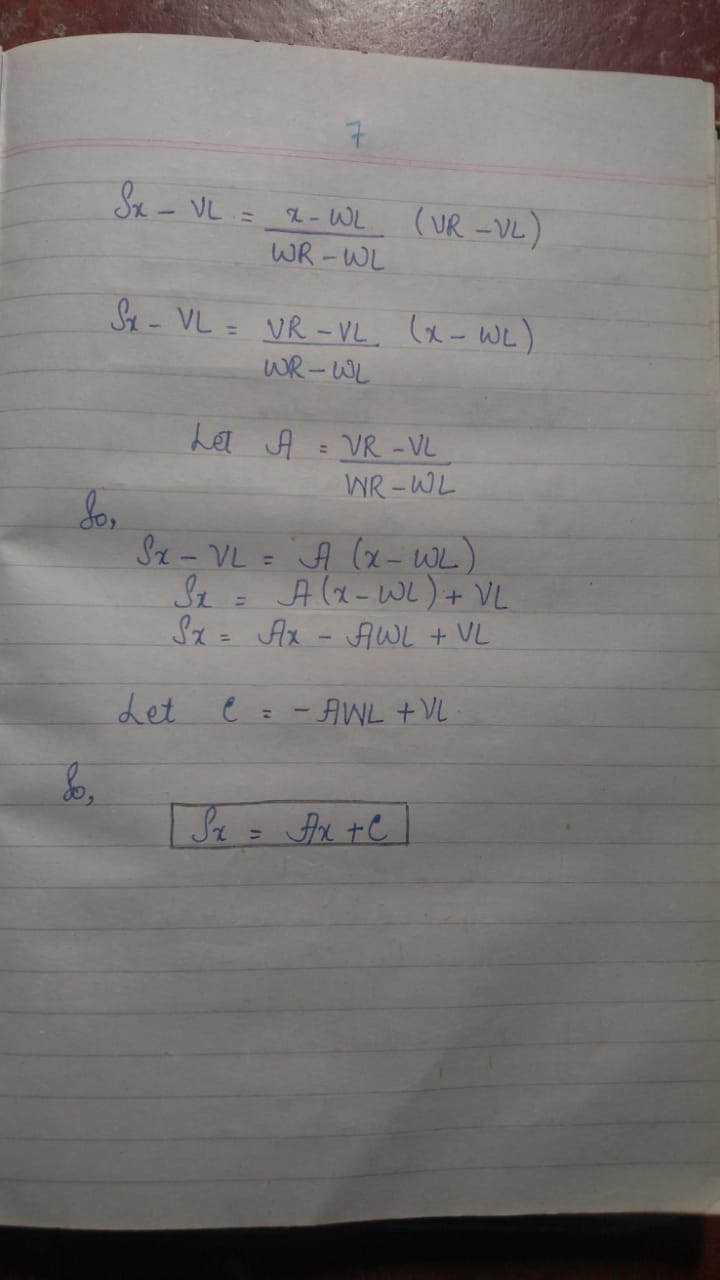 7
Sx - VL = x - WL (VR - VL)
WR - WL
Sx - VL = VR - VL (x - WL)
WR - WL
Let A = VR - VL
WR - WL
So,
Sx - VL = A (x - WL)
Sx = A(x - WL) + VL
Sx = Ax - AWL + VL
Let C = - AWL + VL
So,
Sx = Ax + C